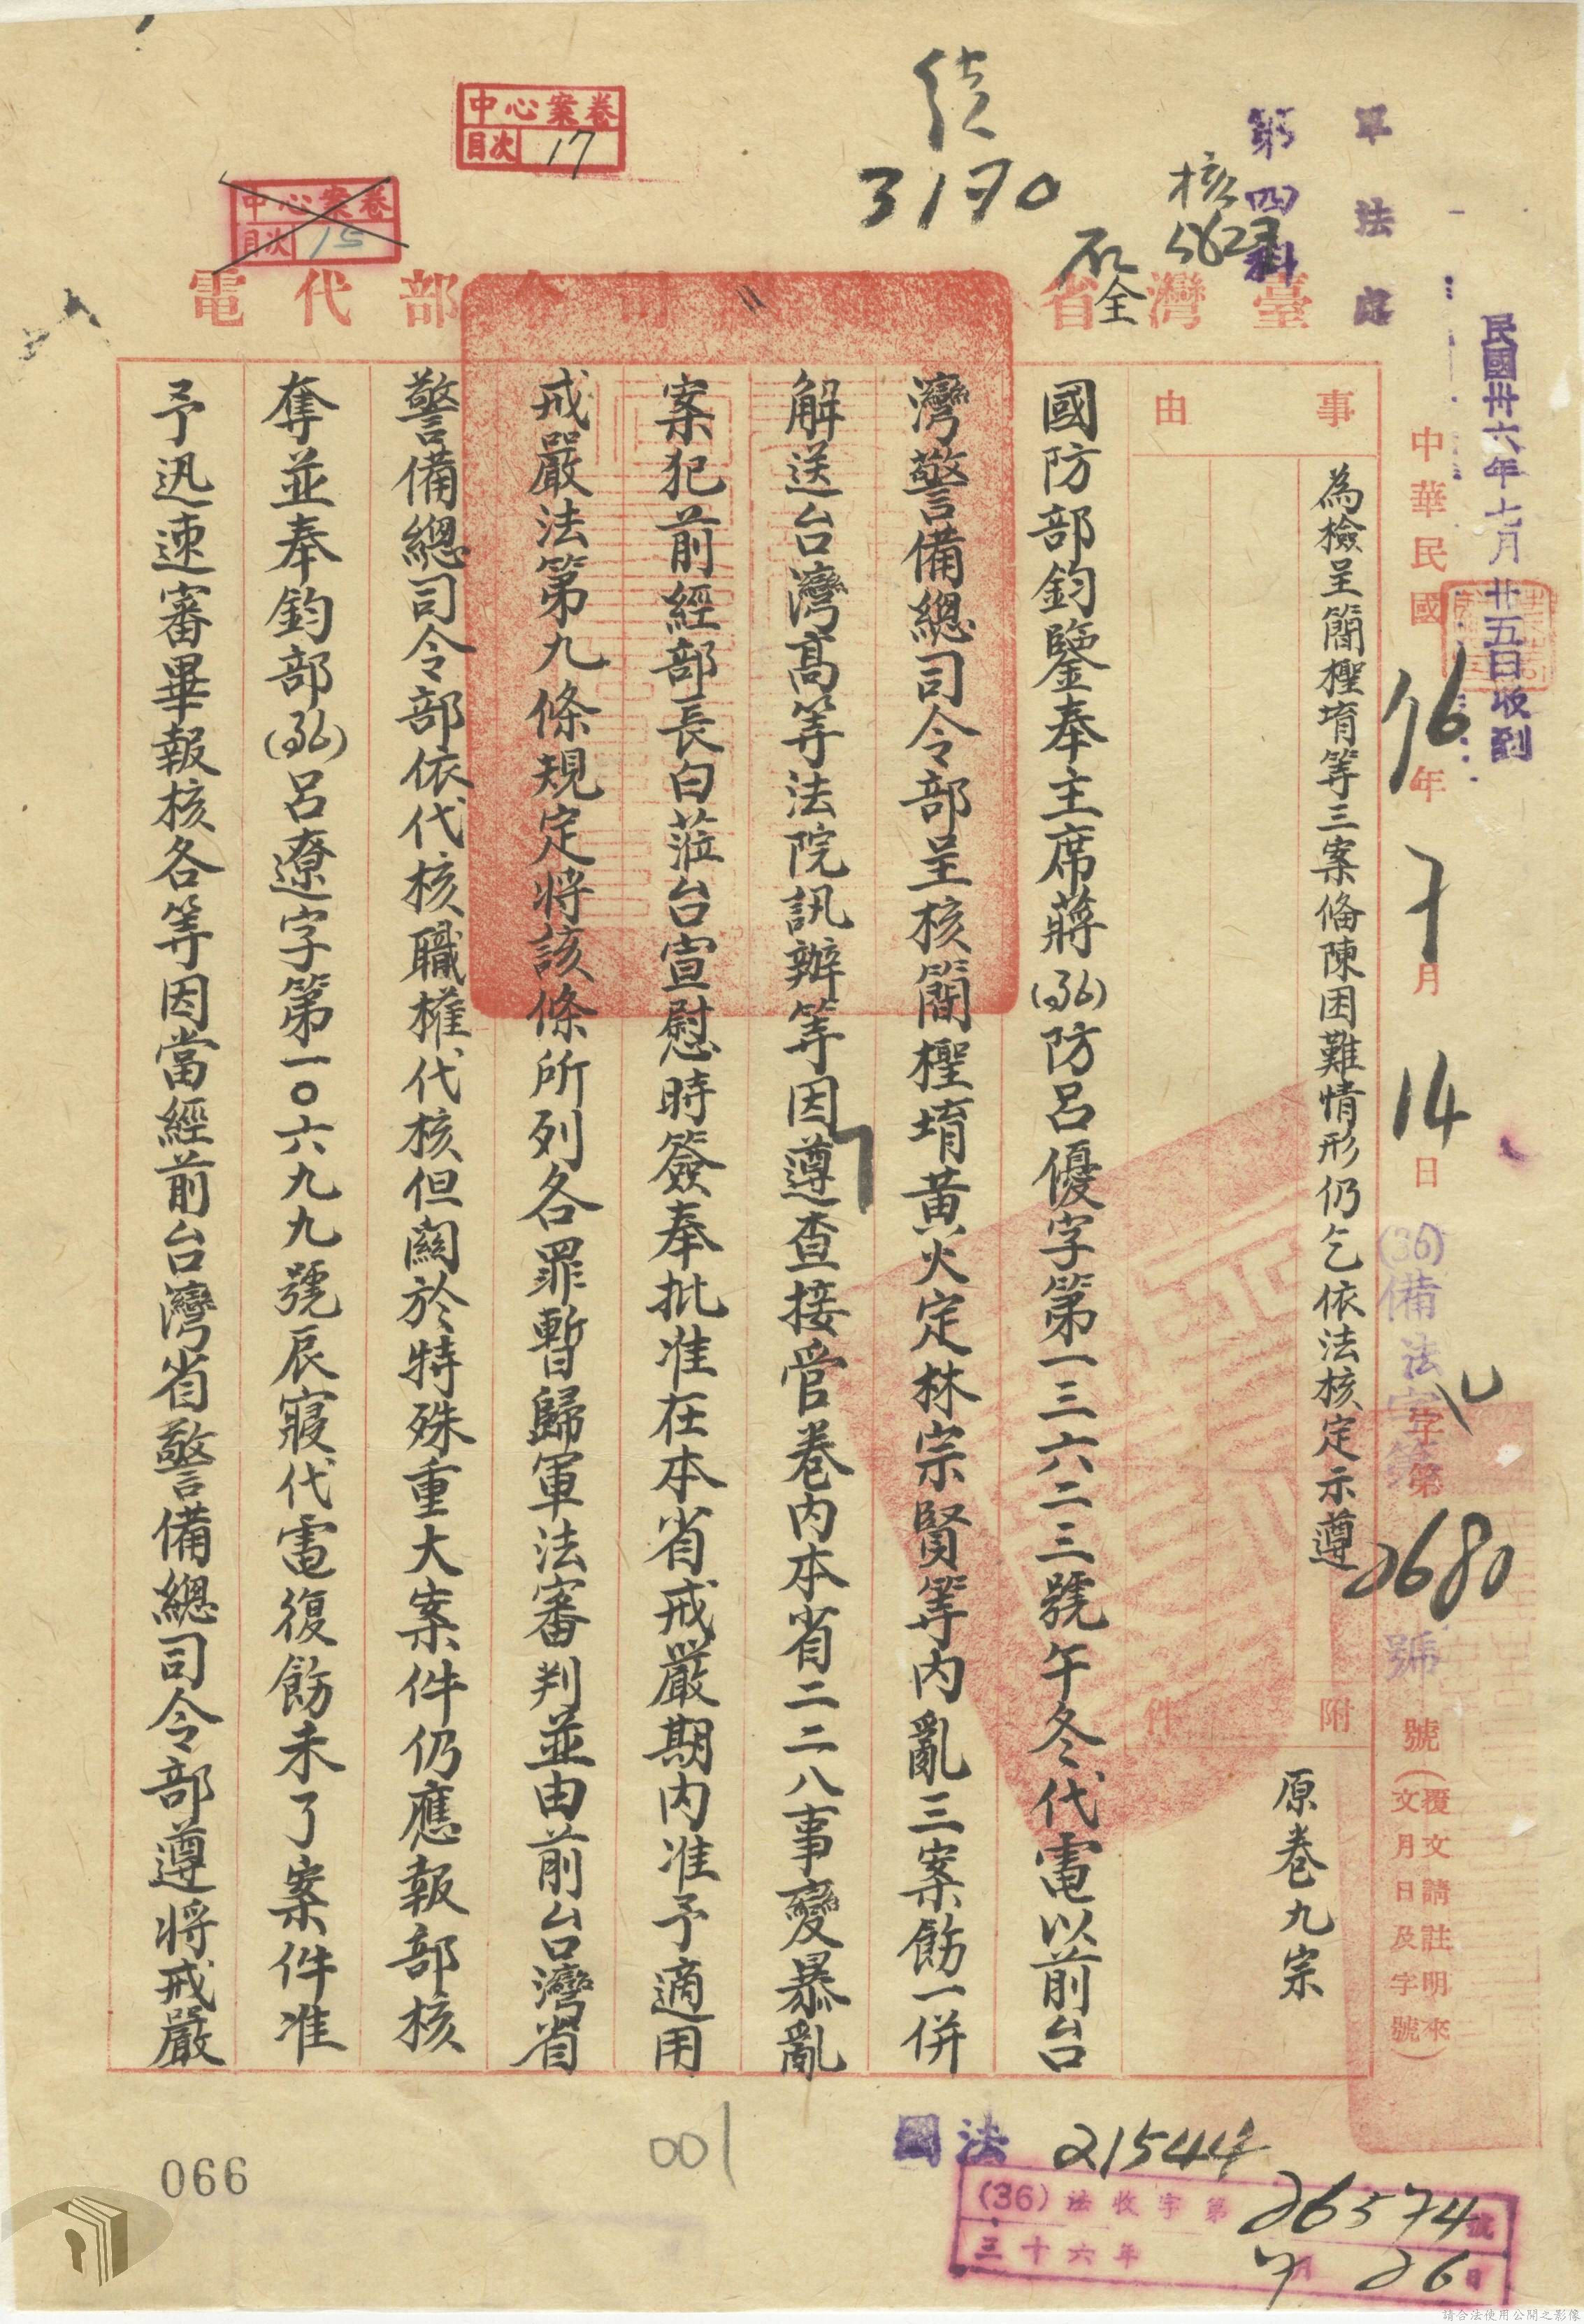 中心案卷
目次 17
中心案卷
目次 15
3170
核
5623
第四科
軍法處
民國卅六年七月廿五日收到
臺灣省
司令部代電
中華民國 36 年 7 月 14 日
(36)備法字第 2680 號
(覆文請註明來文月日及字號)
事由
為檢呈簡檉堉等三案俻陳困難情形仍乞依法核定示遵
附件
原卷九宗
國防部鈞鑒奉主席蔣(36)防呂優字第一三六二三號午冬代電以前台
灣警備總司令部呈核簡檉堉黃火定林宗賢等內亂三案飭一併
解送台灣高等法院訊辦等因遵查接管卷內本省二二八事變暴亂
案犯前經部長白蒞台宣慰時簽奉批准在本省戒嚴期內准予適用
戒嚴法第九條規定將該條所列各罪暫歸軍法審判並由前台灣省
警備總司令部依代核職權代核但關於特殊重大案件仍應報部核
奪並奉鈞部(36)呂遼字第一〇六九九號辰寢代電復飭未了案件准
予迅速審畢報核各等因當經前台灣省警備總司令部遵將戒嚴
066
001
國法 21544
(36)法收字第 26574 號
三十六年 7 月 26 日
請合法使用公開之影像